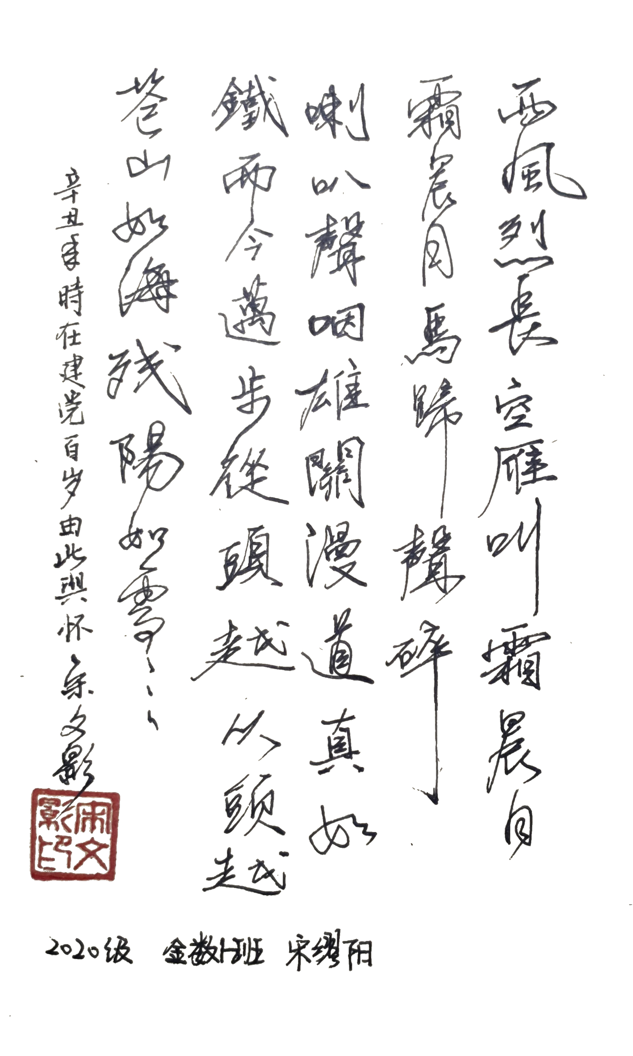 西風烈長空雁叫霜晨月
霜晨月馬蹄聲碎
喇叭聲咽雄關漫道真如
鐵而今邁步從頭越从頭越
苍山如海残陽如雪
辛丑年時在建党百岁由此興怀宋文影
宋文影印
2020级 金数1班 宋阳